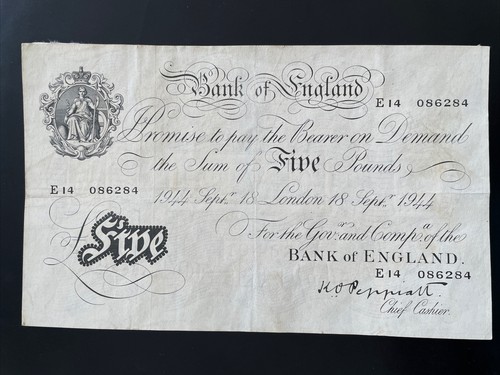 Bank of England
E14 086284
I Promise to pay the Bearer on Demand
the Sum of Five Pounds
E14 086284
1944 Septr 18 London 18 Septr 1944
For the Govr and Compa of the
£Five
BANK OF ENGLAND.
E14 086284
K O Peppiatt.
Chief Cashier.